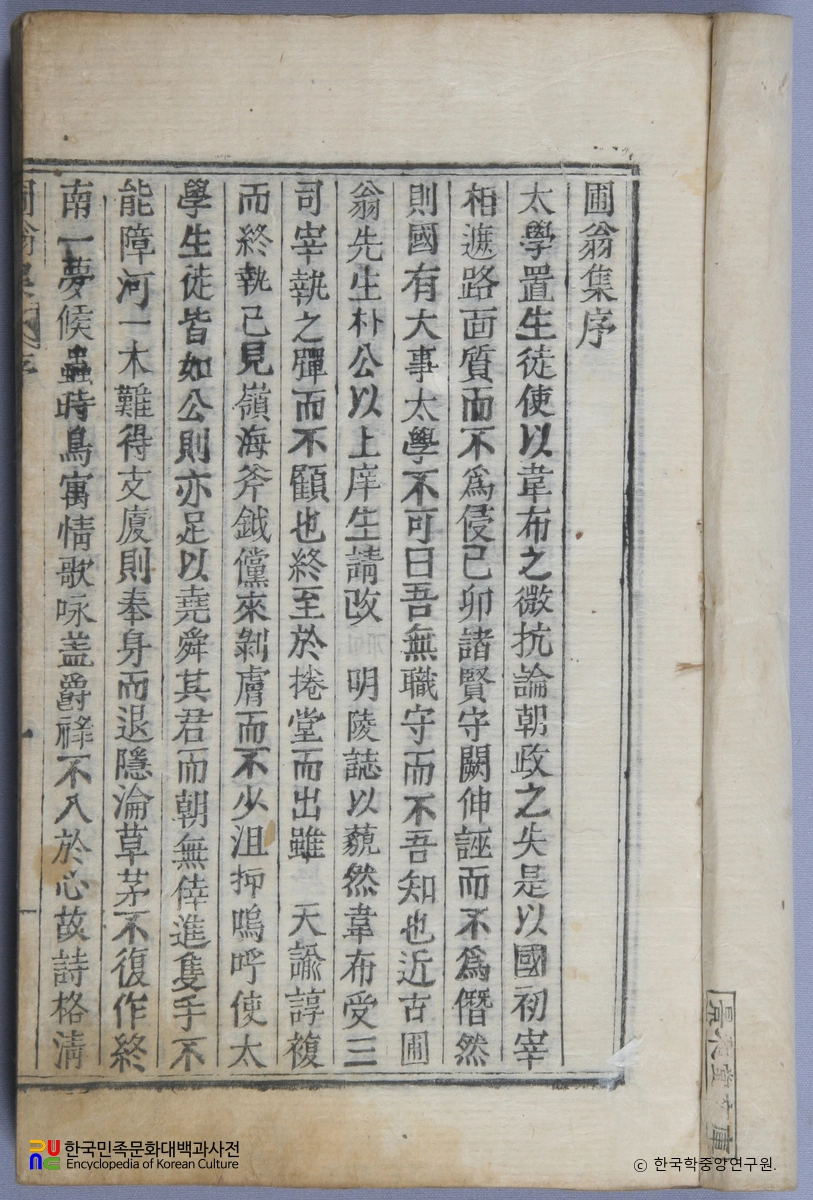 圃翁集序
太學置生徒使以韋布之微抗論朝政之失是以國初宰
相遮路面質而不爲侵己卯諸賢守闕伸誣而不爲僭然
則國有大事太學不可曰吾無職守而不吾知也近古圃
翁先生朴公以上庠生請改 明陵誌以藐然韋布受三
司宰執之彈而不顧也終至於捲堂而出雖 天諭諄複
而終執己見嶺海斧鉞儻來剝膚而不少沮抑嗚呼使太
學生徒皆如公則亦足以堯舜其君而朝無倖進隻手不
能障河一木難得支廈則奉身而退隱淪草茅不復作終
南一夢候蟲時鳥寓情歌咏盖爵祿不入於心故詩格淸
圃翁集
序
한국민족문화대백과사전
Encyclopedia of Korean Culture
© 한국학중앙연구원.